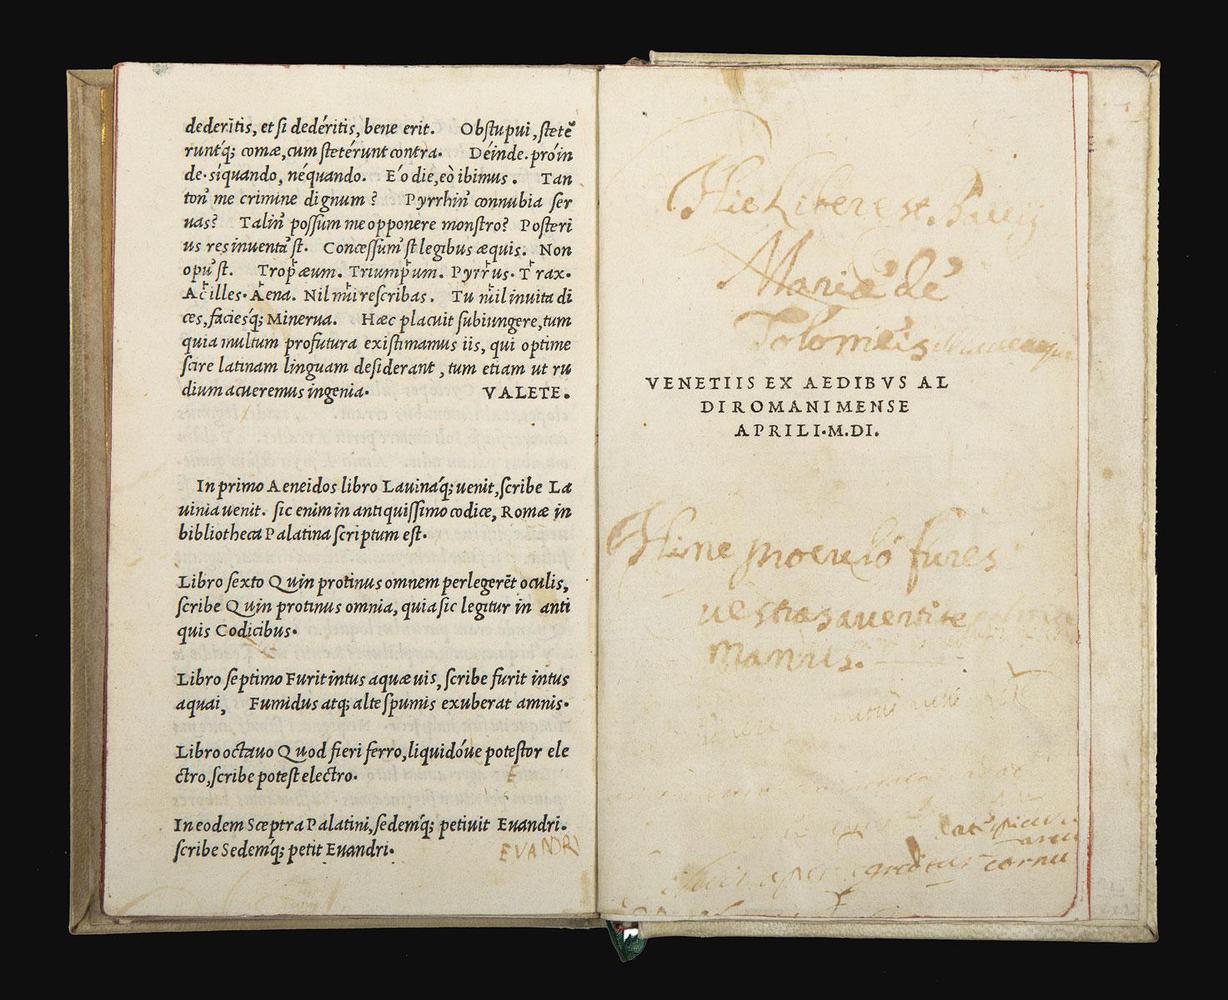 dederĭtis, et si dedéritis, bene erit. Obstupui, stetẽ
runtq́; comæ, cum steterunt contra. Déinde. próin
de. síquando, néquando. Éo die, eò ibimus. Tan
ton' me crimine dignum? Pyrrhin' connubia ser
uas? Talin' possum me opponere monstro? Posteri
us res inuenta'st. Concessum'st legibus æquis. Non
opu'st. Trop̔æum. Trium̔pum. Pyrr̔us. T̔rax.
Ac̔illes. A̔ena. Nil mi rescribas. Tu nil inuita di
ces, faciesq́; Minerua. Hæc placuit subiungere, tum
quia multum profutura existimamus iis, qui optime
scire latinam linguam desiderant, tum etiam ut ru
dium acueremus ingenia. VALETE.
In primo Aeneidos libro Lauinaq́; uenit, scribe La
uinia uenit. sic enim in antiquissimo codice, Romæ in
bibliotheca Palatina scriptum est.
Libro sexto Quin protinus omnem perlegerẽt oculis,
scribe Quin protinus omnia, quia sic legitur in anti
quis Codicibus.
Libro septimo Furit intus aquæ uis, scribe furit intus
aquai, Fumidus atq; alte spumis exuberat amnis.
Libro octauo Quod fieri ferro, liquidóue potestor ele
ctro, scribe potest electro.
In eodem Sceptra Palatini, sedemq́; petiuit Euandri.
scribe Sedemq́; petit Euandri.
EVANDRI
Hic Liber est
Mariæ de
Tolomeis
VENETIIS EX AEDIBVS AL
DI ROMANI MENSE
APRILI.M.DI.
Hinc procul ò fures
uestras auertite
manus.
cornu